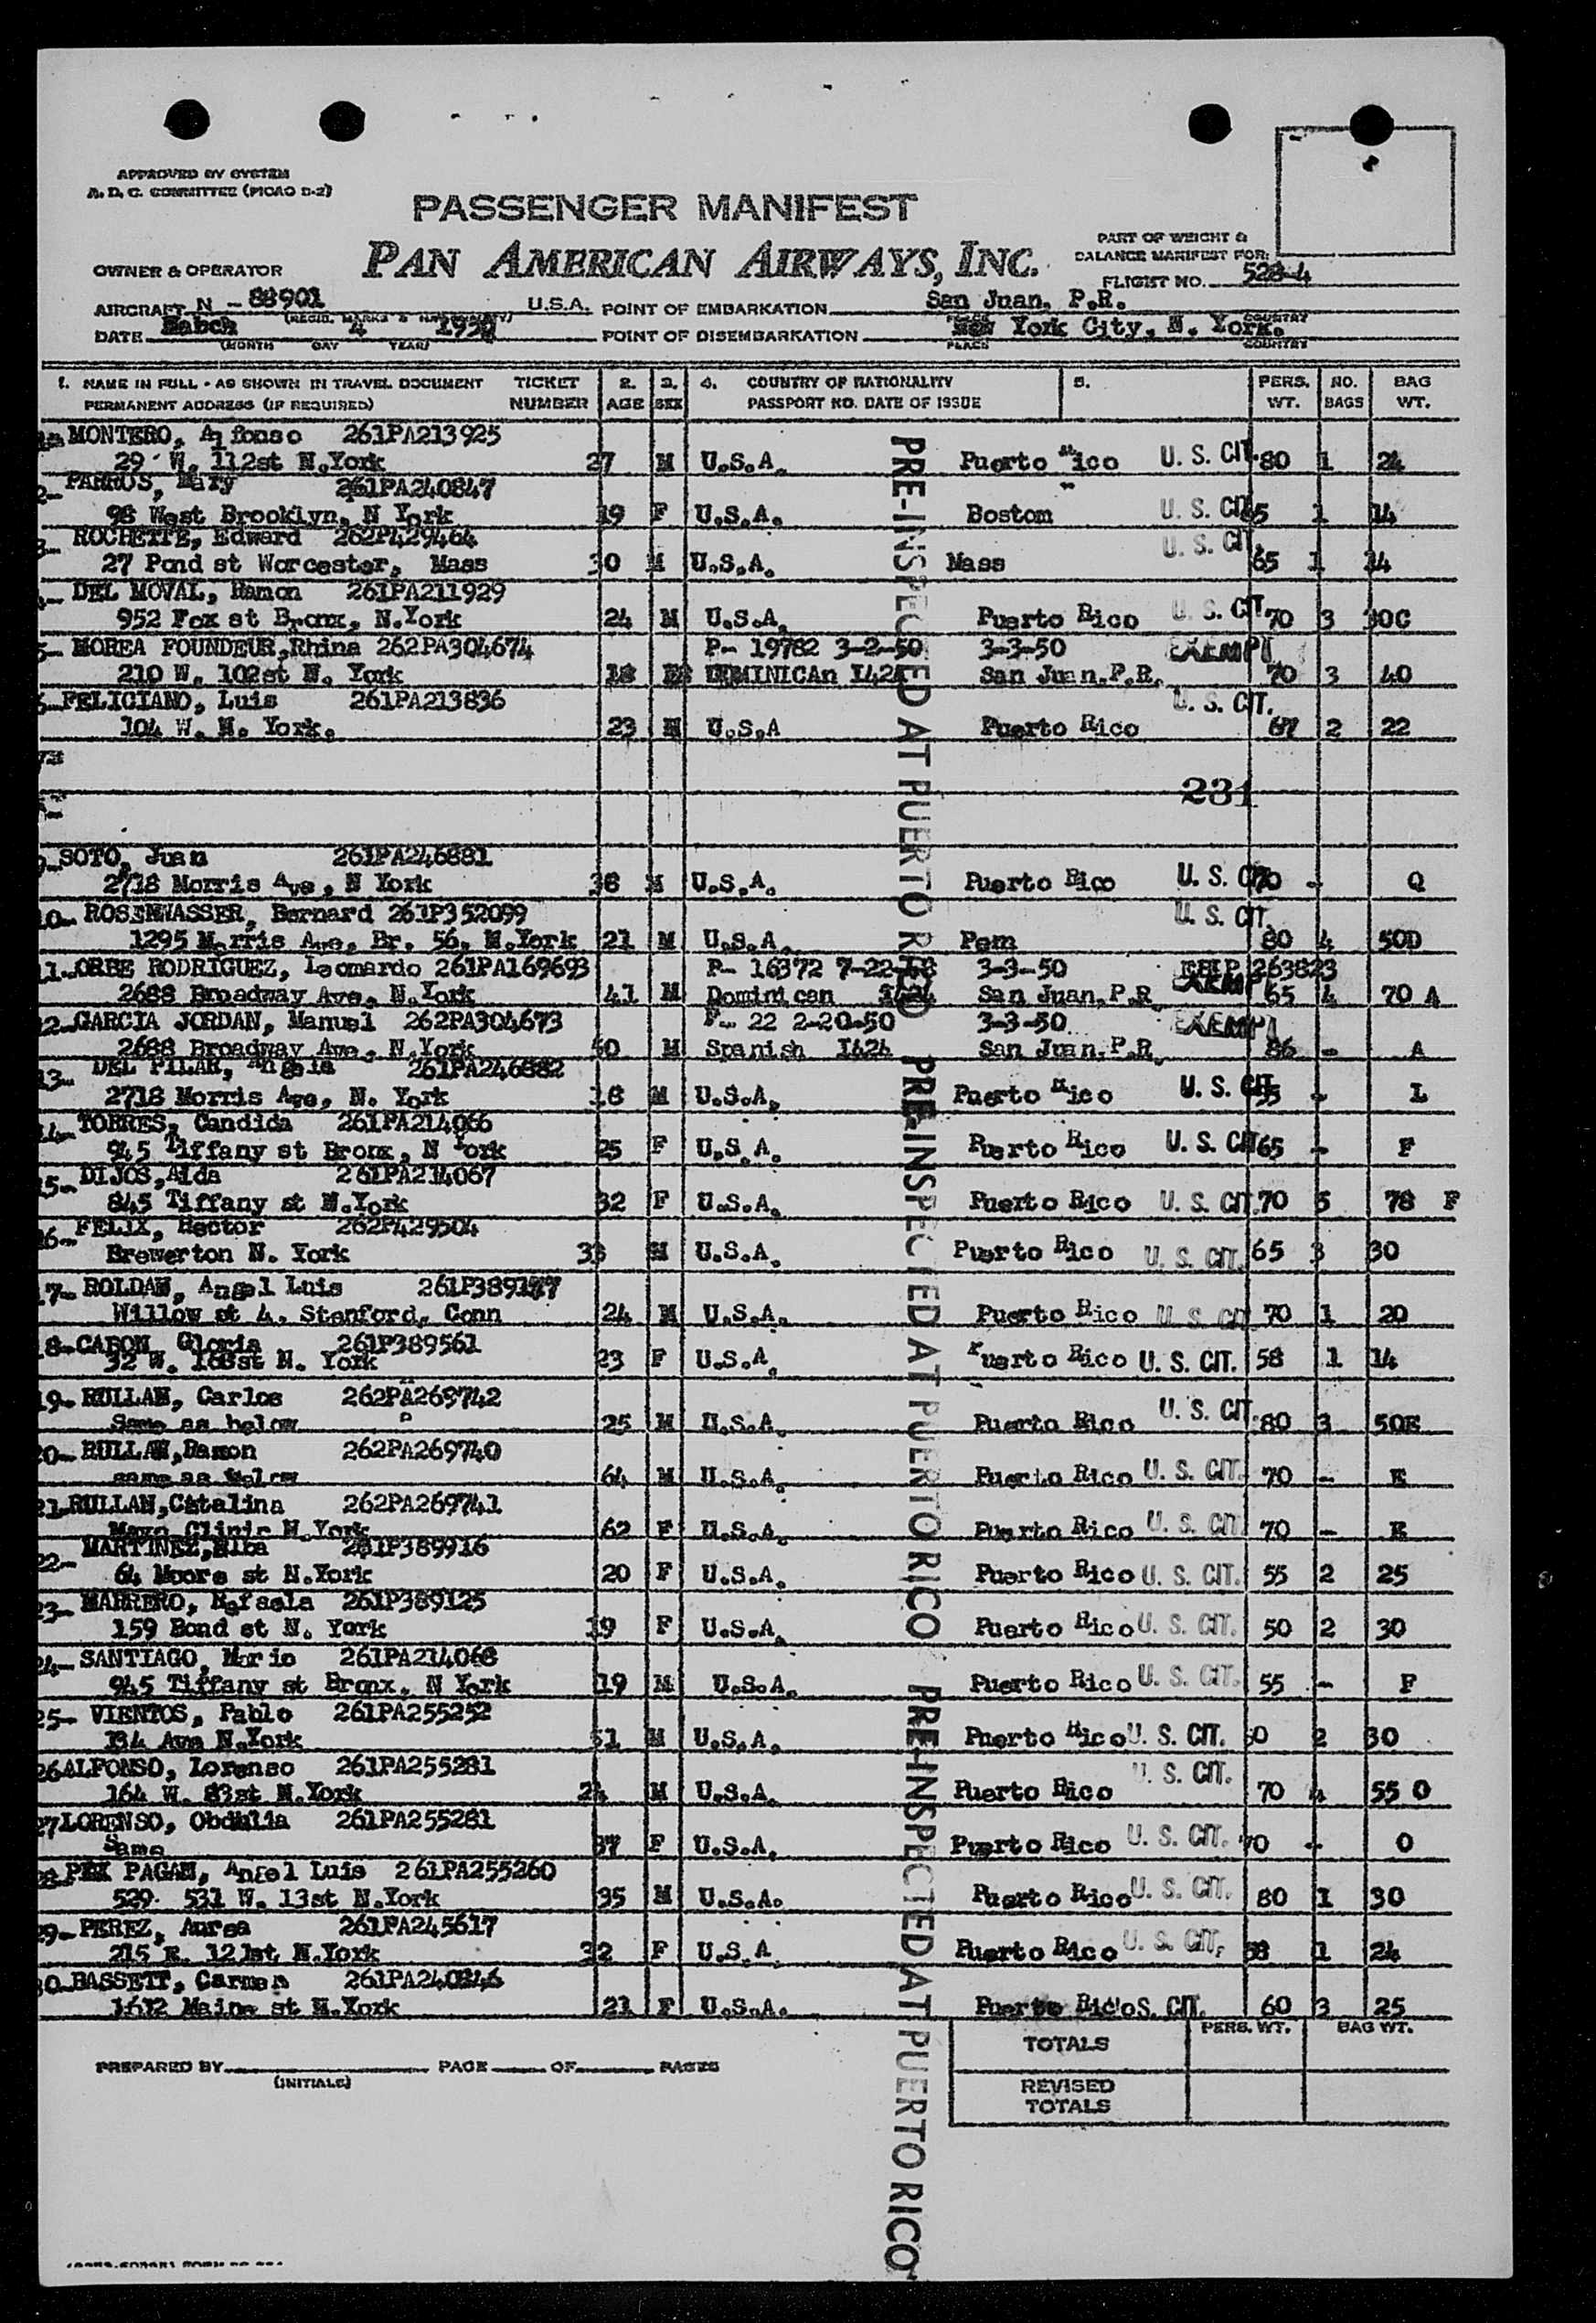 APPROVED BY SYSTEM
A. D. C. COMMITTEE (PICAO D-2)
PASSENGER MANIFEST
PAN AMERICAN AIRWAYS, INC.
PART OF WEIGHT &
BALANCE MANIFEST FOR:
OWNER & OPERATOR
FLIGHT NO. 528-4
AIRCRAFT N - 88901 U.S.A. POINT OF EMBARKATION San Juan, P.R.
(REGIS. MARKS & NATIONALITY) PLACE COUNTRY
DATE 4 1950 POINT OF DISEMBARKATION New York City, N. York.
(MONTH DAY YEAR) PLACE COUNTRY
1. NAME IN FULL - AS SHOWN IN TRAVEL DOCUMENT TICKET 2. 3. 4. COUNTRY OF NATIONALITY 5. PERS. NO. BAG
PERMANENT ADDRESS (IF REQUIRED) NUMBER AGE SEX PASSPORT NO. DATE OF ISSUE WT. BAGS WT.
MONTERO, 261PA213925
29 W. 112st N.York 27 M U.S.A. Puerto Rico U. S. CIT. 80 1 24
2- Mary 261PA240847
98 West Brooklyn, N York 19 F U.S.A. Boston U. S. CIT 1 14
ROCHETTE, Edward 262P429464
27 Pond st Worcester, Mass 30 M U.S.A. Mass U. S. CIT. 65 1 14
DEL MOVAL, Ramon 261PA211929
952 Fox st Bronx, N.York 24 M U.S.A. Puerto Rico U. S. CIT. 70 3 30C
5- MOREA FOUNDEUR, Rhina 262PA304674 P- 19782 3-2-50 3-3-50 EXEMPT
210 W. 102st N. York 18 DOMINICAn I424 San Juan,P.R. 70 3 40
6-FELICIANO, Luis 261PA213836 U. S. CIT.
104 W. N. York. 23 M U.S.A Puerto Rico 2 22
231
SOTO, Juan 261PA246881
2718 Morris Ave, N York 38 M U.S.A. Puerto Rico U. S. CIT - Q
10- ROSENWASSER, Bernard 261P352099 U. S. CIT.
1295 Morris Ave. Br. 56, N.York 21 M U.S.A. 80 4 50D
11-ORBE RODRIGUEZ, Leonardo 261PA169693 P- 16372 3-3-50 263823
2688 Broadway Ave. N.York 41 M Dominican San Juan,P.R. EXEMPT 65 4 70 A
12-GARCIA JORDAN, Manuel 262PA304673 22 2-20-50 3-3-50 EXEMPT
2688 Broadway Ave. N.York M Spanish I424 San Juan,P.R. 86 - A
13- DEL PILAR, 261PA246882
2718 Morris Ave, N. York 18 M U.S.A. Puerto Rico U. S. CIT - L
14- TORRES, Candida 261PA214066
945 Tiffany st Bronx, N York 25 F U.S.A. Puerto Rico U. S. CIT 65 - F
15- DIJOS, Aida 261PA214067
845 Tiffany st N.York 32 F U.S.A. Puerto Rico U. S. CIT. 70 5 78 F
16- FELIX, Hector 262P429504
Brewerton N. York 33 M U.S.A. Puerto Rico U. S. CIT. 65 3 30
17- ROLDAN, Angel Luis
Willow st 4. Stanford, Conn 24 M U.S.A. Puerto Rico U. S. CIT 70 1 20
18- Gloria 261P389561
32 W. N. York 23 F U.S.A. Puerto Rico U. S. CIT. 58 1 14
19- RULLAN, Carlos 262PA269742
Same as below 25 M U.S.A. Puerto Rico U. S. CIT. 80 3 50E
20- RULLAN, Ramon 262PA269740
same as below 64 M U.S.A. Puerto Rico U. S. CIT. 70 - E
21-RULLAN, Catalina 262PA269741
Clinic N.York 62 F U.S.A. Puerto Rico U. S. CIT. 70 - E
22- MARTINEZ, Elba 261P389916
64 Moore st N.York 20 F U.S.A. Puerto Rico U. S. CIT. 55 2 25
23- MARRERO, Rafaela 261P389125
159 Bond st N. York F U.S.A. Puerto Rico U. S. CIT. 50 2 30
24- SANTIAGO, Mario 261PA214068
945 Tiffany st Bronx, N York 19 M U.S.A. Puerto Rico U. S. CIT. 55 - F
25- VIENTOS, Pablo 261PA255252
Ave N.York M U.S.A. Puerto Rico U. S. CIT. 2 30
26ALFONSO, Lorenso 261PA255281
164 W. 83st N.York 24 M U.S.A. Puerto Rico U. S. CIT. 70 4 55 O
27LORENSO, Obdulia 261PA255281
Same 37 F U.S.A. Puerto Rico U. S. CIT. 70 - O
PAGAN, Angel Luis 261PA255260
529- 531 W. 13st N.York 35 M U.S.A. Puerto Rico U. S. CIT. 80 1 30
29- PEREZ, Aurea 261PA245617
215 E. 121st N.York 32 F U.S.A Puerto Rico U. S. CIT. 58 1 24
BASSETT, Carmen
1612 Maine st N.York 21 F U.S.A. Puerto Rico S. CIT. 60 3 25
PRE-INSPECTED AT PUERTO RICO
PRE-INSPECTED AT PUERTO RICO
PRE-INSPECTED AT PUERTO RICO
TOTALS PERS. WT. BAG WT.
PREPARED BY PAGE OF PAGES
(INITIALS)
REVISED
TOTALS